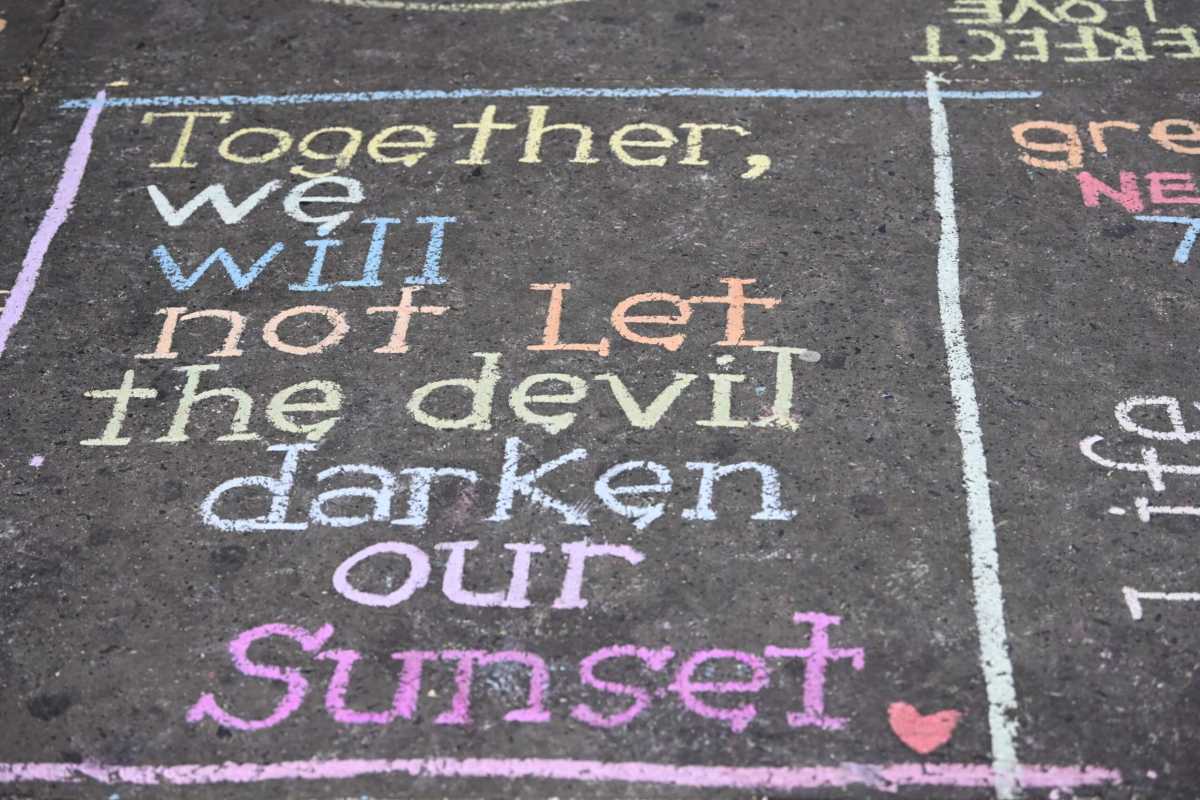 Together,
we
will
not Let
the devil
darken
our
Sunset.
PERFECT
LOVE
gre
NE
7
life